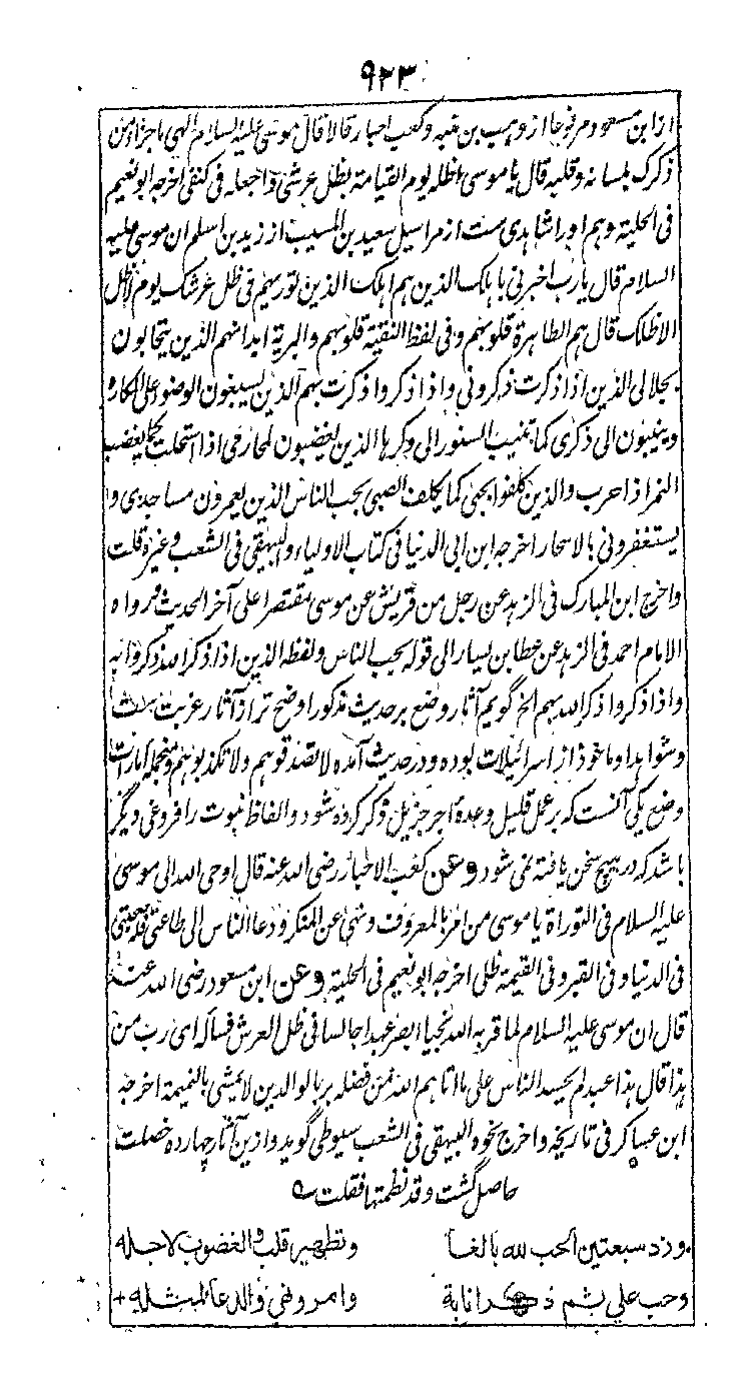 ۹۲۳
از ابن مسعود مرفوعا از وهب بن منبه و کعب احبار قالا قال موسی علیه السلام الهی ما جزاء من
ذکرک بلسانه و قلبه قال یا موسی اظله یوم القیامة بظل عرشی و اجعله فی کنفی اخرجه ابو نعیم
فی الحلیة و هم او را شاهدی ست از مراسیل سعید بن المسیب از زید بن اسلم ان موسی علیه
السلام قال یا رب اخبرنی باهلک الذین هم اهلک الذین تؤریهم فی ظل عرشک یوم لا ظل
الا ظلک قال هم الطاهرة قلوبهم و فی لفظ النقیة قلوبهم و البریة ابدانهم الذین یتحابون
بجلالی الذین اذا ذکرت ذکرونی و اذا ذکروا ذکرت بهم الذین یسبغون الوضو علی المکاره
و ینیبون الی ذکری کما تنیب النسور الی وکرها الذین یغضبون لمحارمی اذا استحلت کما یغضب
النمر اذا حرب و الذین کلفوا بحبی کما یکلف الصبی بحب الناس الذین یعمرون مساجدی و
یستغفرونی بالاسحار اخرجه ابن ابی الدنیا فی کتاب الاولیاء و البیهقی فی الشعب و غیره قلت
و اخرج ابن المبارک فی الزهد عن رجل من قریش عن موسی مقتصرا علی آخر الحدیث و رواه
الامام احمد فی الزهد عن عطا بن یسار الی قوله بحب الناس و لفظه الذین اذا ذکر الله ذکروا به
و اذا ذکروا ذکر الله بهم الخ گویم آثار وضع بر حدیث مذکور اوضح تر از آثار غربت ست
و شواهد او ماخوذ از اسرائیلات بوده و در حدیث آمده لا تصدقوهم و لا تکذبوهم و منجمله امارات
وضع یکی آنست که بر عمل قلیل وعدۀ اجر جزیل ذکر کرده شود و الفاظ نبوت را فروغی دیگر
باشد که در هیچ سخن یافته نمی شود و عن کعب الاحبار رضی الله عنه قال اوحی الله الی موسی
علیه السلام فی التوراة یا موسی من امر بالمعروف و نهی عن المنکر و دعا الناس الی طاعتی فله صحبتی
فی الدنیا و فی القبر و فی القیمة ظلی اخرجه ابو نعیم فی الحلیة و عن ابن مسعود رضی الله عنه
قال ان موسی علیه السلام لما قربه الله نجیا ابصر عبدا جالسا فی ظل العرش فسأله ای رب من
هذا قال هذا عبد لم یحسد الناس علی ما اتاهم الله من فضله بر بالوالدین لا یمشی بالنمیمة اخرجه
ابن عساکر فی تاریخه و اخرج نحوه البیهقی فی الشعب سیوطی گوید و ازین آثار چهارده خصلت
حاصل گشت و قد نظمتها فقلت
وزد سبعتین الحب لله بالغا و تطهیر قلب والغضوب لاجله
وحب علی ثم ذکر انابة وامر ونهی والدعا لمثله